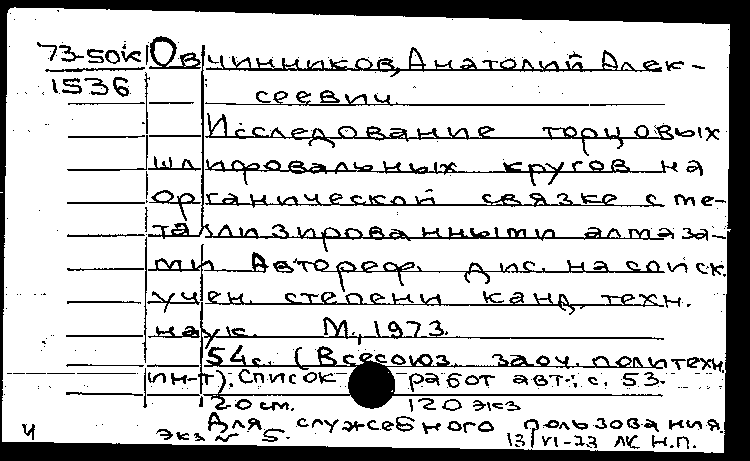 73-50к Овчинников, Анатолий Алек-
1536 сеевич
Исследование торцовых
шлифовальных кругов на
органической связке с ме-
таллизированными алмаза-
ми Автореф. дис. на соиск.
учен. степени канд. техн.
наук. М., 1973.
54с. (Всесоюз. заоч. политехн.
ин-т). Список работ авт.: с. 53.
20 см. 120 экз
Для служебного пользования.
Ч экз № 5. 13/VI-73 ЛК Н.П.